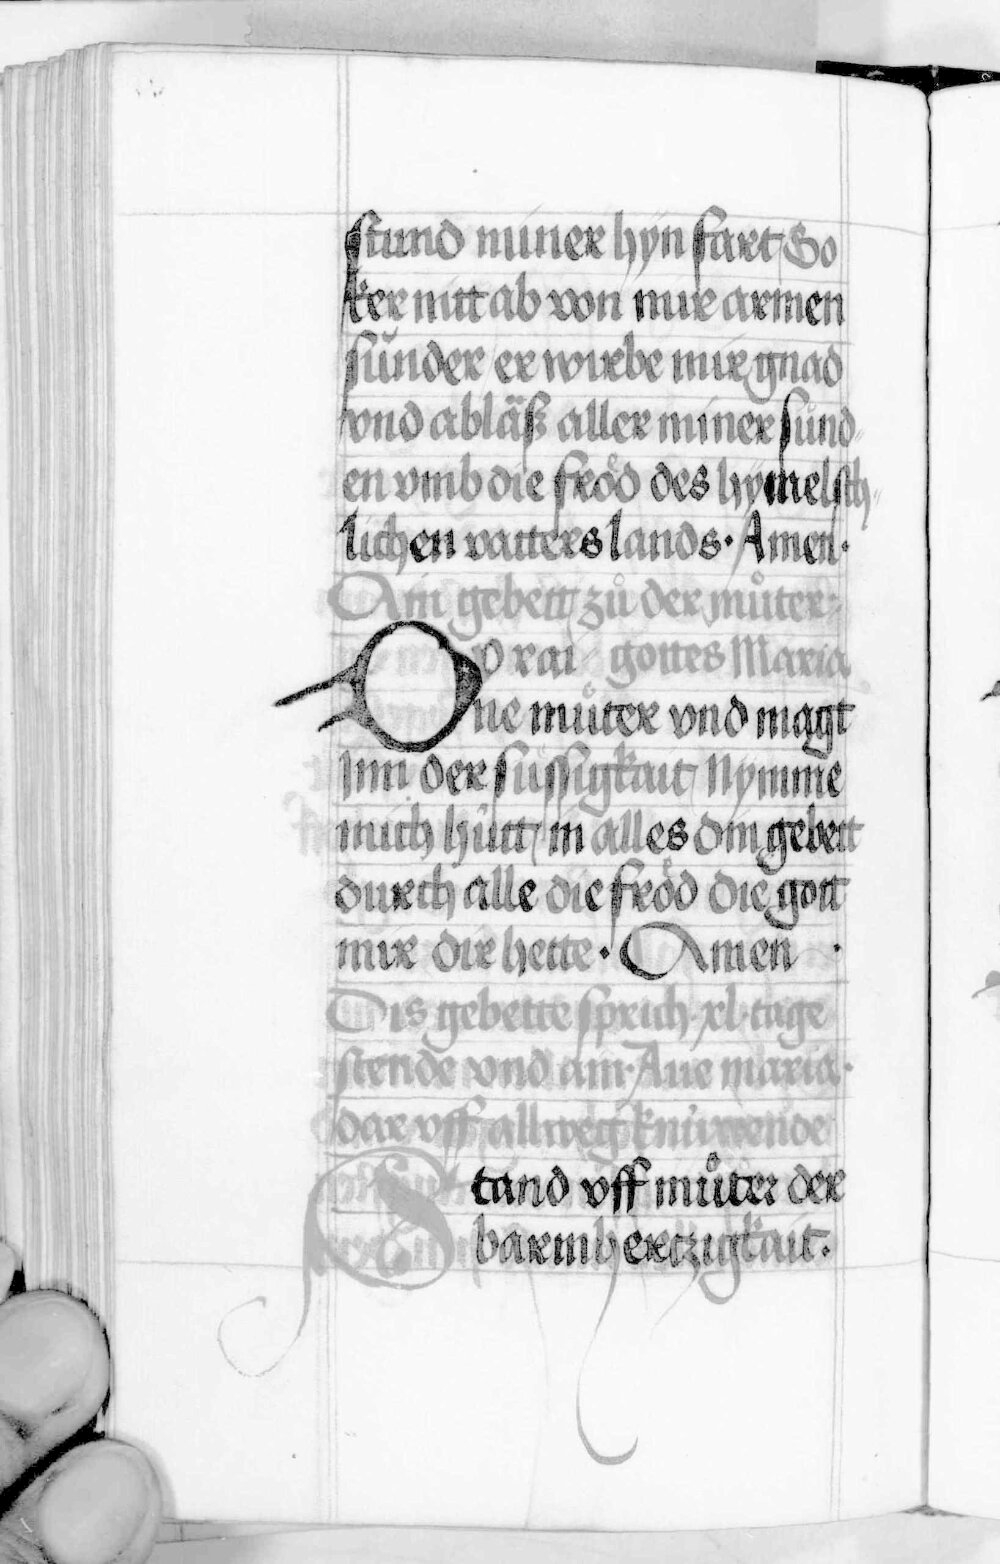 stund miner hÿn fart So
ker nitt ab von mir armen
sünder er wirbe mir gnad
vnd abläß aller miner sünd
en vmb die fröd des hÿmelsch
lichen vatters lands · Amen ·
Ain gebett zů der můter
O rai gottes Maria
ne můter vnd magt
Inn der süssigkait Nymme
mich hütt in alles din gebett
durch alle die fröd die gott
mir dir hette · Amen ·
Dis gebette sprich · xl · tage
stende vnd ain · Aue maria ·
dar vff allweg knüwende
Stand vff můter der
barmhertzigkait ·